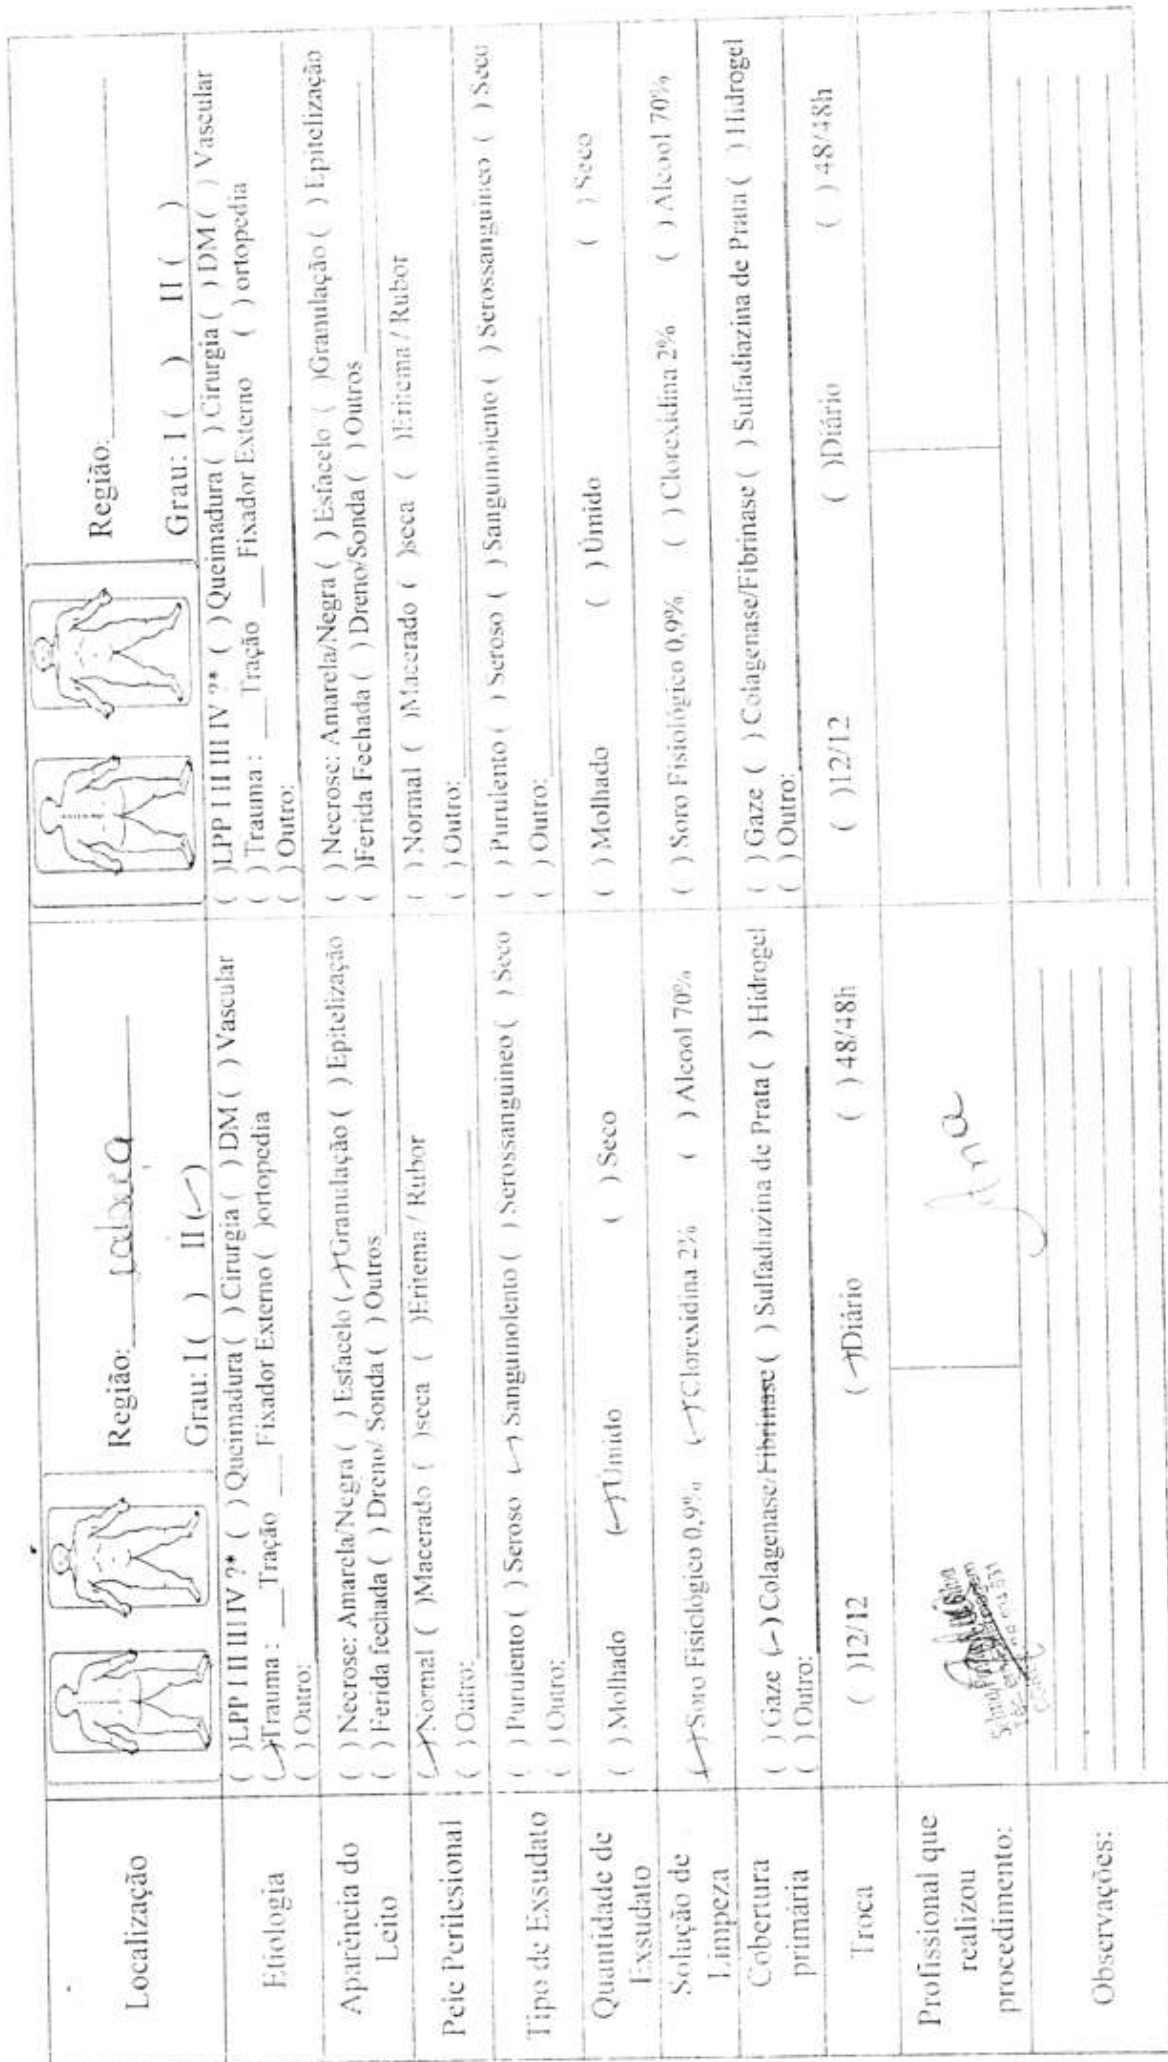 Localização
Região: cabeça
Grau: I ( ) II (✓)
Região:
Grau: I ( ) II ( )
Etiologia
( )LPP I II III IV ?* ( ) Queimadura ( ) Cirurgia ( ) DM ( ) Vascular
(✓)Trauma : ___Tração ___Fixador Externo ( )ortopedia
( ) Outro:
( )LPP I II III IV ?* ( ) Queimadura ( ) Cirurgia ( ) DM ( ) Vascular
( ) Trauma : ___Tração ___Fixador Externo ( ) ortopedia
( ) Outro:
Aparência do
Leito
( ) Necrose: Amarela/Negra ( ) Esfacelo (✓)Granulação ( ) Epitelização
( ) Ferida fechada ( ) Dreno/ Sonda ( ) Outros
( ) Necrose: Amarela/Negra ( ) Esfacelo ( )Granulação ( ) Epitelização
( )Ferida Fechada ( ) Dreno/Sonda ( ) Outros
Pele Perilesional
(✓)Normal ( )Macerado ( )seca ( )Eritema / Rubor
( ) Outro:
( ) Normal ( )Macerado ( )seca ( )Eritema / Rubor
( ) Outro:
Tipo de Exsudato
( ) Purulento ( ) Seroso (✓) Sanguinolento ( ) Serossanguineo ( ) Seco
( ) Outro:
( ) Purulento ( ) Seroso ( ) Sanguinolento ( ) Serossanguineo ( ) Seco
( ) Outro:
Quantidade de
Exsudato
( ) Molhado (✓)Úmido ( ) Seco
( ) Molhado ( ) Úmido ( ) Seco
Solução de
Limpeza
(✓)Soro Fisiológico 0,9% (✓)Clorexidina 2% ( ) Alcool 70%
( ) Soro Fisiológico 0,9% ( ) Clorexidina 2% ( ) Alcool 70%
Cobertura
primária
( ) Gaze (✓) Colagenase/Fibrinase ( ) Sulfadiazina de Prata ( ) Hidrogel
( ) Outro:
( ) Gaze ( ) Colagenase/Fibrinase ( ) Sulfadiazina de Prata ( ) Hidrogel
( ) Outro:
Troca
( )12/12 (✓)Diário ( ) 48/48h
( )12/12 ( )Diário ( ) 48/48h
Profissional que
realizou
procedimento:
Ana
Observações: